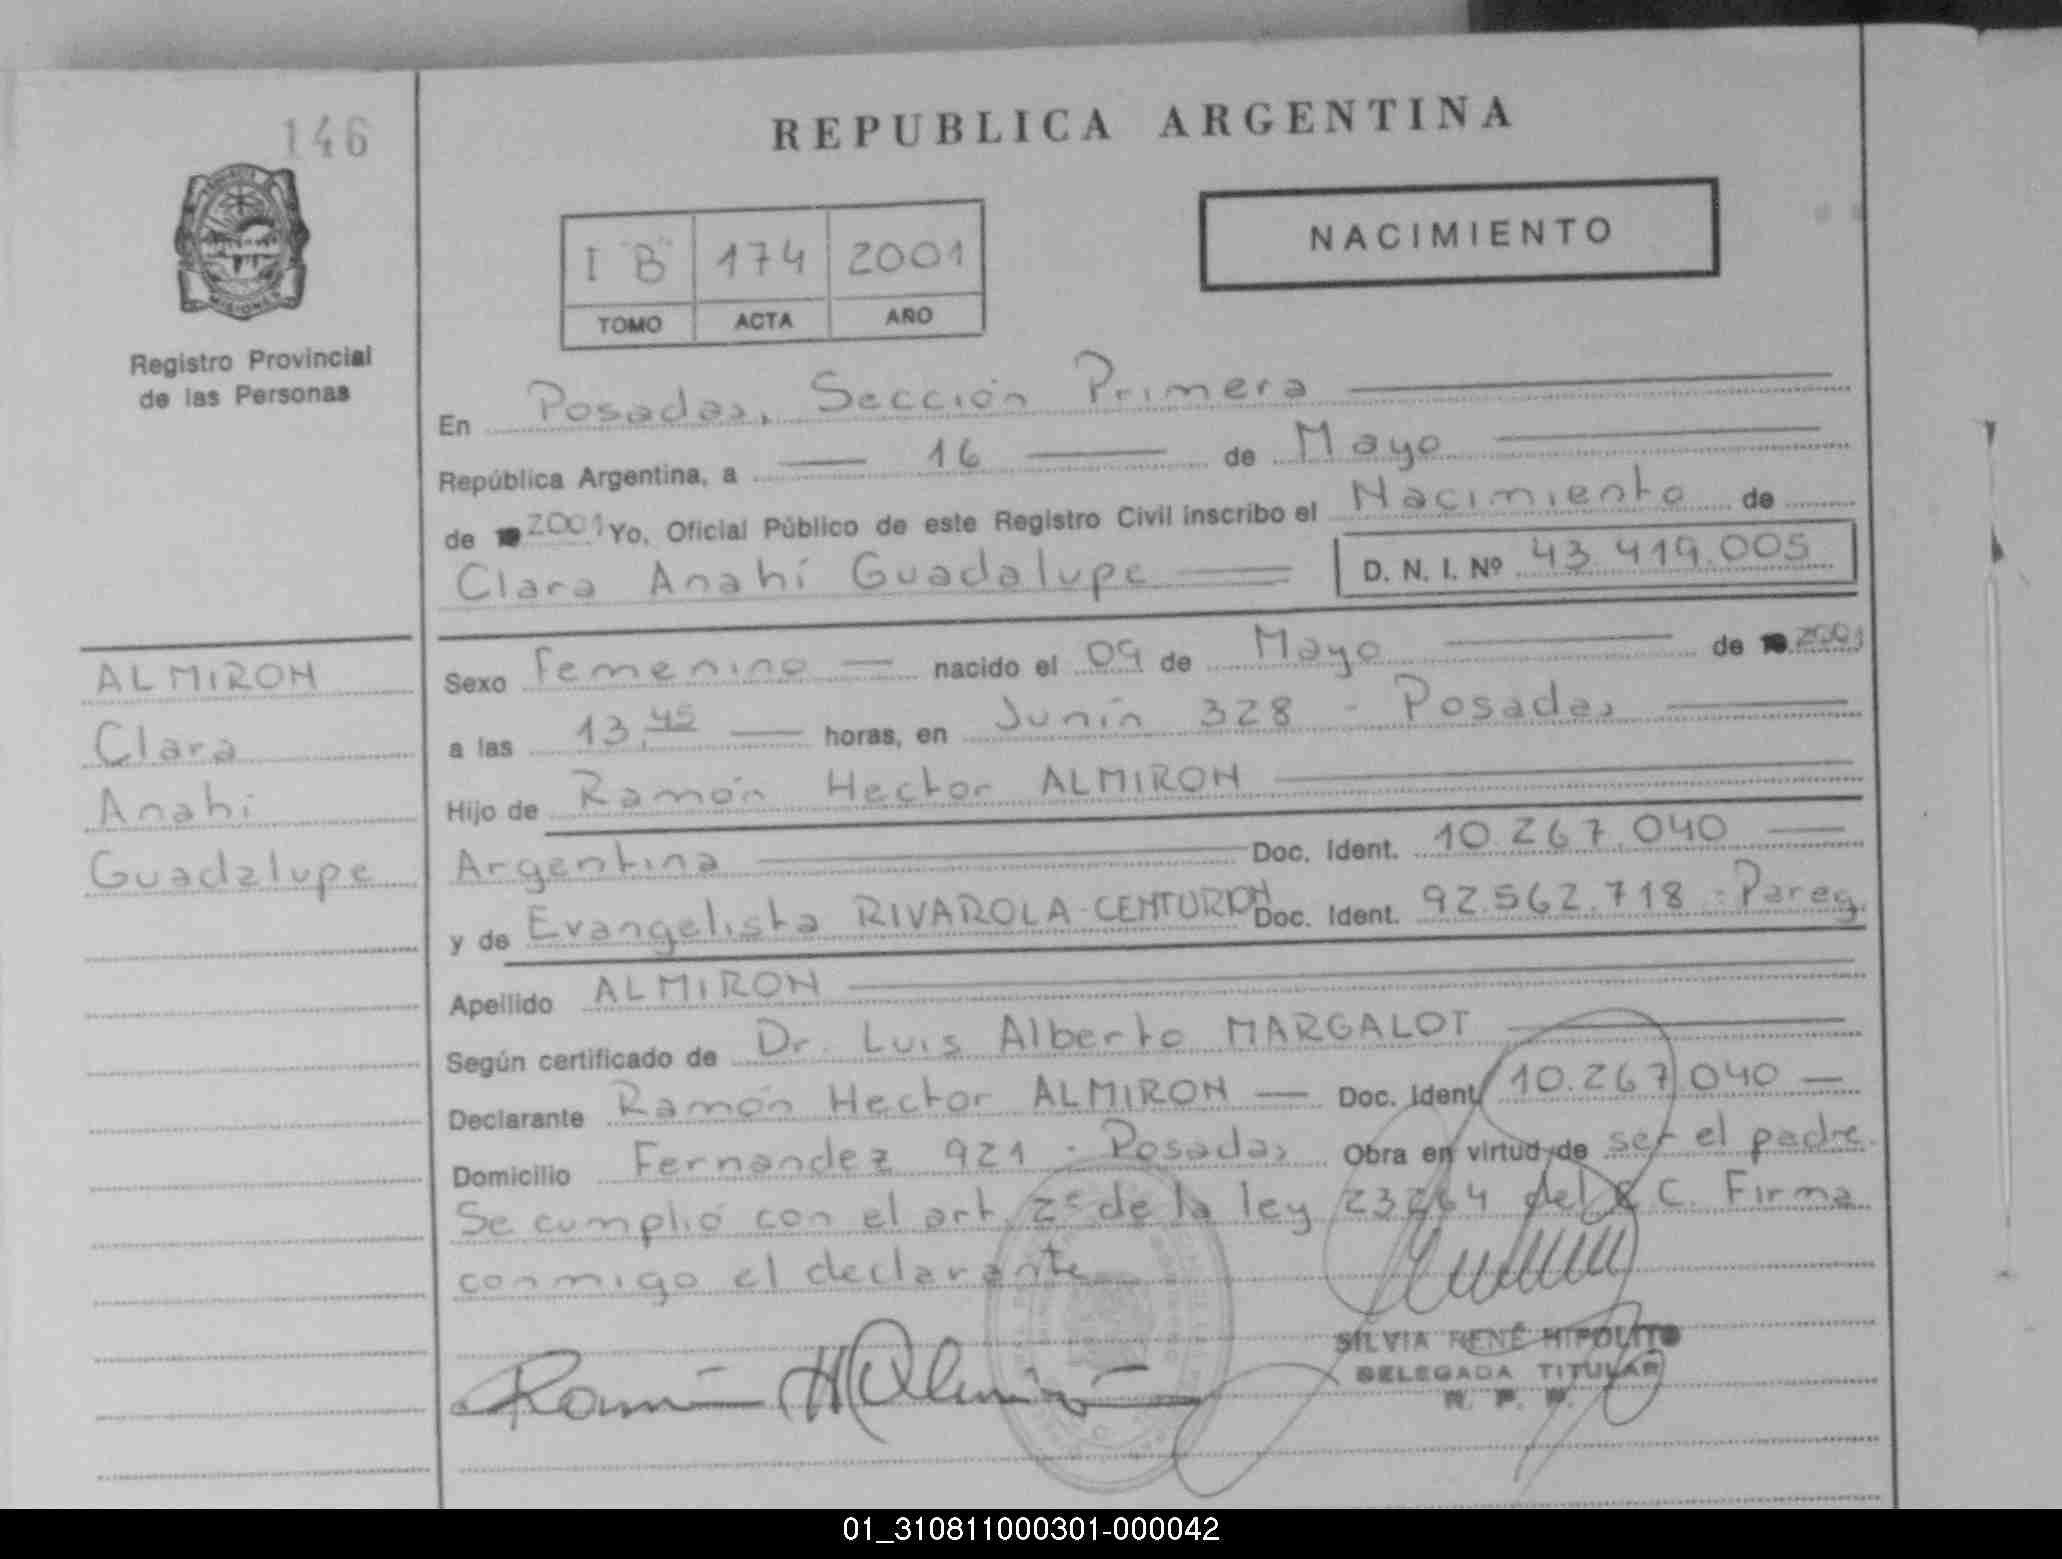 146
REPUBLICA ARGENTINA
MISIONES
NACIMIENTO
I "B" 174 2001
TOMO ACTA AÑO
Registro Provincial
de las Personas
En Posadas, Sección Primera
República Argentina, a 16 de Mayo
de 2001 Yo, Oficial Público de este Registro Civil inscribo el Nacimiento de
Clara Anahí Guadalupe D. N. I. Nº 43.419.005
ALMIRON
Clara
Anahi
Guadalupe
Sexo Femenino nacido el 09 de Mayo de 2001
a las 13,45 horas, en Junín 328 - Posadas
Hijo de Ramón Hector ALMIRON
Argentina Doc. Ident. 10.267.040
y de Evangelista RIVAROLA-CENTURION Doc. Ident. 92.562.718 - Parag.
Apellido ALMIRON
Según certificado de Dr. Luis Alberto MARGALOT
Declarante Ramón Hector ALMIRON Doc. Ident. 10.267.040
Domicilio Fernandez 921 - Posadas Obra en virtud de ser el padre.
Se cumplió con el art. 2º de la ley 23264 del C.C. Firma
conmigo el declarante
SILVIA RENÉ HIPOLITO
DELEGADA TITULAR
R. P. P.
01_310811000301-000042